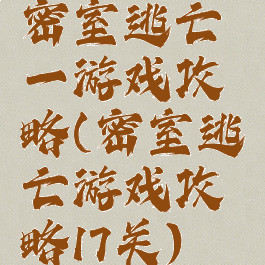 密室逃亡
一游戏攻
略(密室逃
亡游戏攻
略17关)